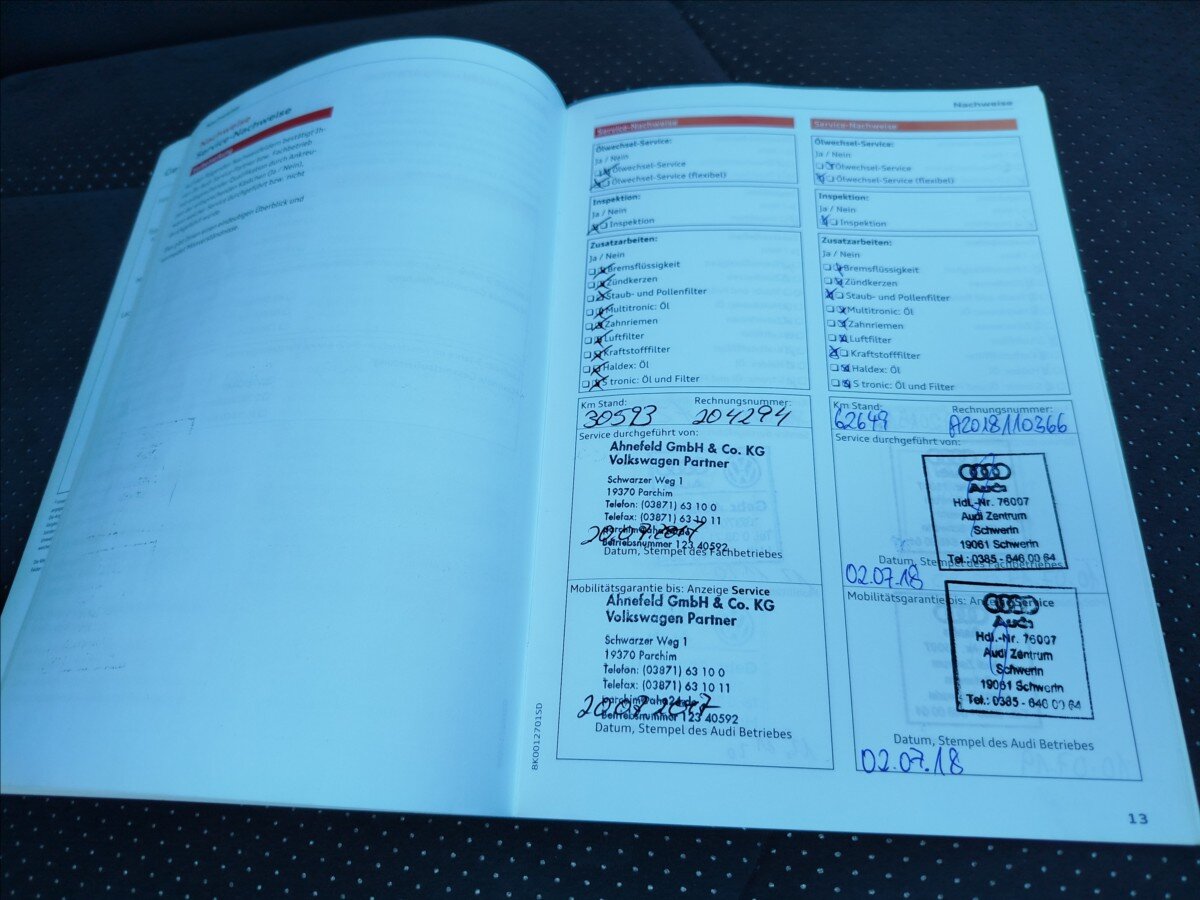 Nachweise
Nachweise
Service-Nachweise
Nachweise
Service-Nachweise
Ölwechsel-Service:
Ja / Nein
Ölwechsel-Service
Ölwechsel-Service (flexibel)
Inspektion:
Ja / Nein
Inspektion
Zusatzarbeiten:
Ja / Nein
Bremsflüssigkeit
Zündkerzen
Staub- und Pollenfilter
Multitronic: Öl
Zahnriemen
Luftfilter
Kraftstofffilter
Haldex: Öl
S tronic: Öl und Filter
Km Stand: Rechnungsnummer:
30593 204294
Service durchgeführt von:
Ahnefeld GmbH & Co. KG
Volkswagen Partner
Schwarzer Weg 1
19370 Parchim
Telefon: (03871) 63 10 0
Telefax: (03871) 63 10 11
Betriebsnummer 123 40592
Datum, Stempel des Fachbetriebes
Mobilitätsgarantie bis: Anzeige Service
Ahnefeld GmbH & Co. KG
Volkswagen Partner
Schwarzer Weg 1
19370 Parchim
Telefon: (03871) 63 10 0
Telefax: (03871) 63 10 11
Betriebsnummer 123 40592
Datum, Stempel des Audi Betriebes
8K0012701SD
Service-Nachweise
Ölwechsel-Service:
Ja / Nein
Ölwechsel-Service
Ölwechsel-Service (flexibel)
Inspektion:
Ja / Nein
Inspektion
Zusatzarbeiten:
Ja / Nein
Bremsflüssigkeit
Zündkerzen
Staub- und Pollenfilter
Multitronic: Öl
Zahnriemen
Luftfilter
Kraftstofffilter
Haldex: Öl
S tronic: Öl und Filter
Km Stand: Rechnungsnummer:
62649 A2018110366
Service durchgeführt von:
Audi
Hdl.-Nr. 76007
Audi Zentrum
Schwerin
19061 Schwerin
Tel.: 0385 - 646 00 64
Datum, Stempel des Fachbetriebes
02.07.18
Mobilitätsgarantie bis: Anzeige Service
Audi
Hdl.-Nr. 76007
Audi Zentrum
Schwerin
19061 Schwerin
Tel.: 0385 - 646 00 64
Datum, Stempel des Audi Betriebes
02.07.18
13